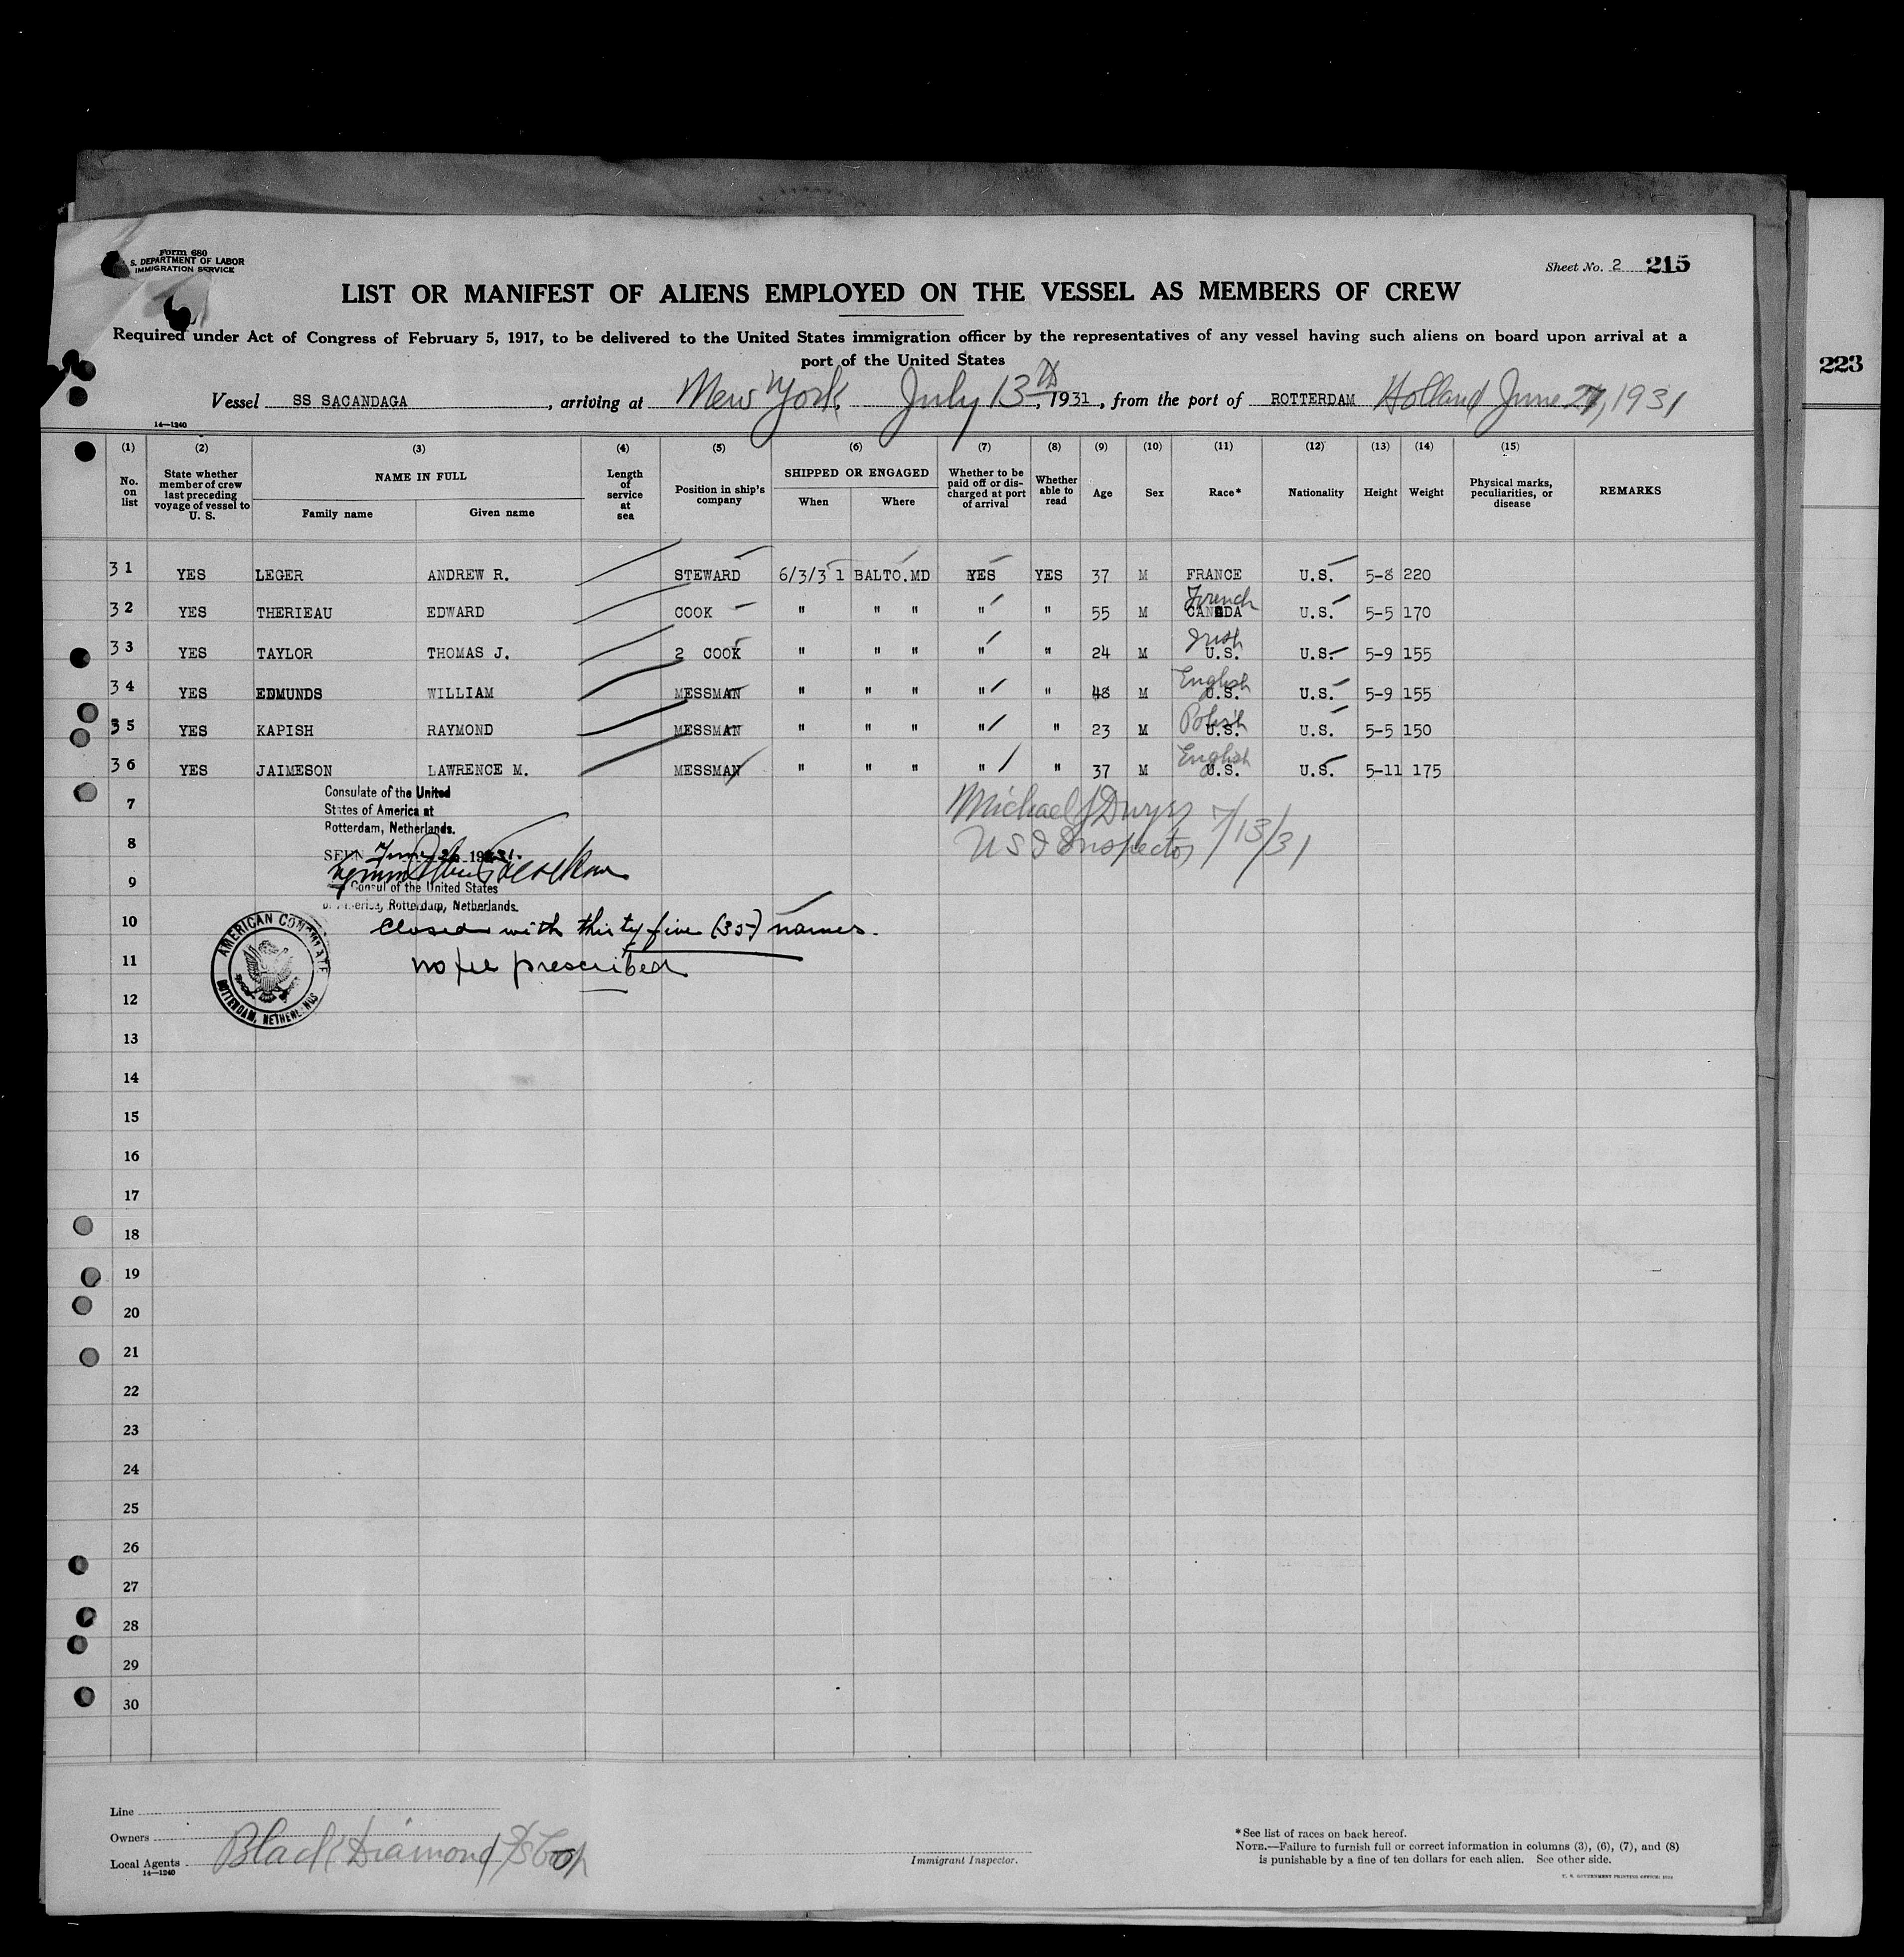 Form 680
S. DEPARTMENT OF LABOR
IMMIGRATION SERVICE
Sheet No. 2 215
LIST OR MANIFEST OF ALIENS EMPLOYED ON THE VESSEL AS MEMBERS OF CREW
Required under Act of Congress of February 5, 1917, to be delivered to the United States immigration officer by the representatives of any vessel having such aliens on board upon arrival at a
port of the United States
223
Vessel SS SACANDAGA, arriving at New York, July 13th, 1931, from the port of ROTTERDAM Holland June 27, 1931
14—1240
(1) (2) (3) (4) (5) (6) (7) (8) (9) (10) (11) (12) (13) (14) (15)
No. on list State whether member of crew last preceding voyage of vessel to U. S. NAME IN FULL Family name Given name Length of service at sea Position in ship's company SHIPPED OR ENGAGED When Where Whether to be paid off or discharged at port of arrival Whether able to read Age Sex Race* Nationality Height Weight Physical marks, peculiarities, or disease REMARKS
31 YES LEGER ANDREW R. STEWARD 6/3/31 BALTO.MD YES YES 37 M FRANCE U.S. 5-8 220
32 YES THERIEAU EDWARD COOK " " " " " 55 M French CANADA U.S. 5-5 170
33 YES TAYLOR THOMAS J. 2 COOK " " " " " 24 M Irish U.S. U.S. 5-9 155
34 YES EDMUNDS WILLIAM MESSMAN " " " " " 48 M English U.S. U.S. 5-9 155
35 YES KAPISH RAYMOND MESSMAN " " " " " 23 M Polish U.S. U.S. 5-5 150
36 YES JAIMESON LAWRENCE M. MESSMAN " " " " " 37 M English U.S. U.S. 5-11 175
Consulate of the United
States of America at
Rotterdam, Netherlands.
SEEN June 26 1931.
Consul of the United States
Rotterdam, Netherlands.
Michael J Dwyer 7/13/31
U S I Inspector
7
8
9
10
closed with thirty five (35) names.
11
no fee prescribed
AMERICAN CONSULATE
ROTTERDAM, NETHERLANDS
12
13
14
15
16
17
18
19
20
21
22
23
24
25
26
27
28
29
30
Line
Owners
Local Agents Black Diamond SS Corp
14—1240
Immigrant Inspector.
*See list of races on back hereof.
NOTE.—Failure to furnish full or correct information in columns (3), (6), (7), and (8)
is punishable by a fine of ten dollars for each alien. See other side.